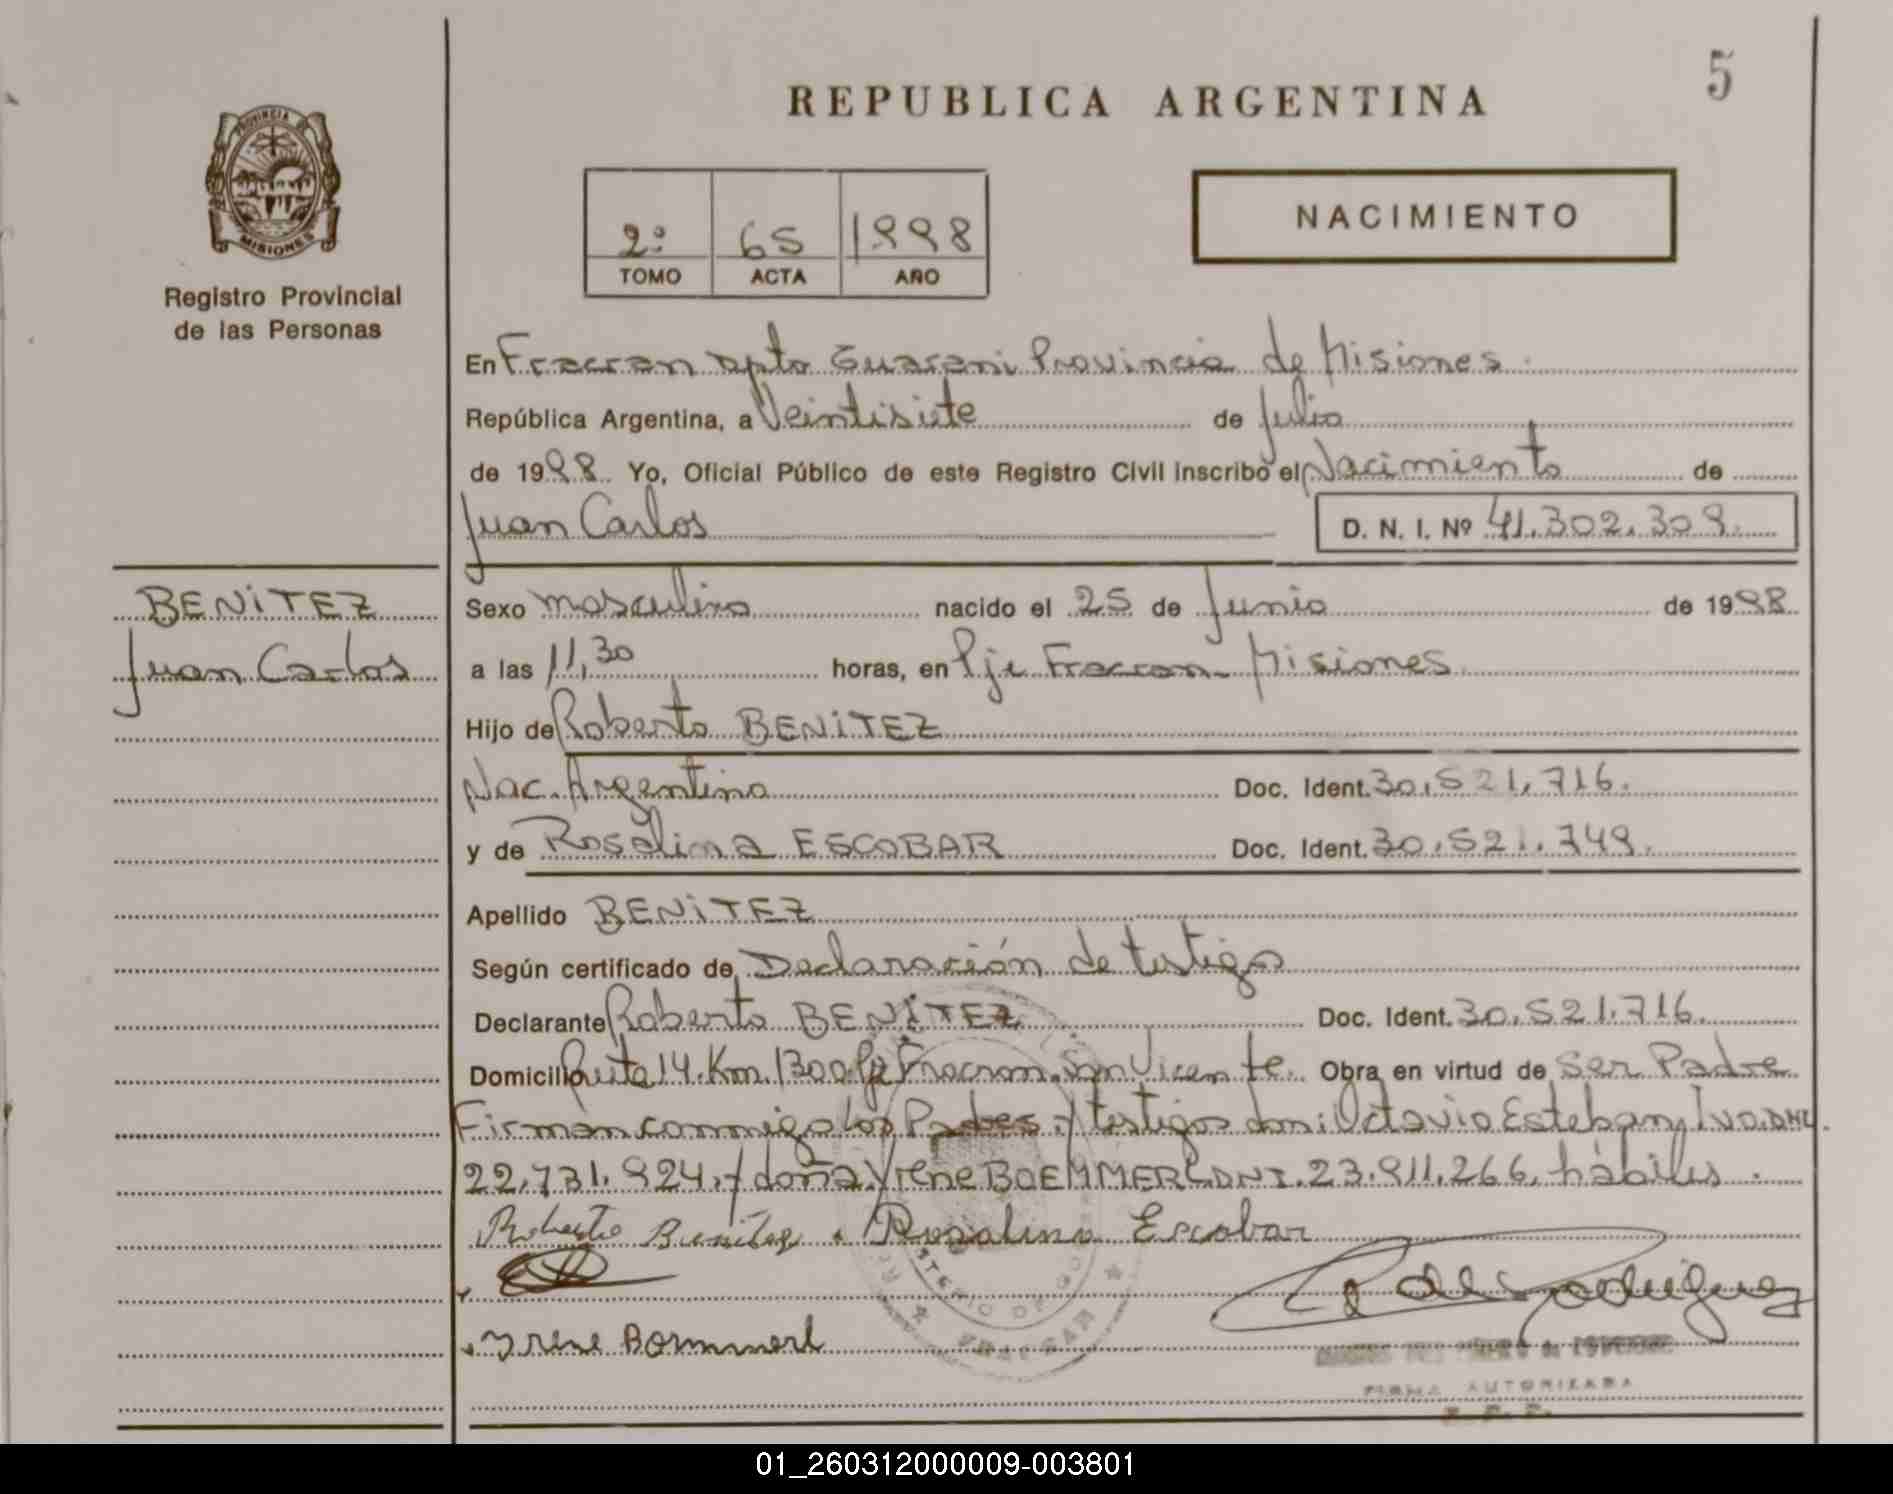 5
REPUBLICA ARGENTINA
PROVINCIA DE
MISIONES
Registro Provincial
de las Personas
2º 65 1998
TOMO ACTA AÑO
NACIMIENTO
En Fracran dpto Guarani Provincia de Misiones.
República Argentina, a Veintisiete de Julio
de 1998. Yo, Oficial Público de este Registro Civil inscribo el Nacimiento de
Juan Carlos D. N. I. Nº 41.302.309.
BENiTEZ
Juan Carlos
Sexo masculino nacido el 25 de Junio de 1998
a las 11,30 horas, en Pje Fracran - Misiones
Hijo de Roberto BENiTEZ
Nac. Argentino Doc. Ident. 30.521.716.
y de Rosalina ESCOBAR Doc. Ident. 30.521.749.
Apellido BENiTEZ
Según certificado de Declaración de testigo
Declarante Roberto BENiTEZ Doc. Ident. 30.521.716.
Domicilio Ruta 14. Km. 1300 Pje Fracran. San Vicente. Obra en virtud de Ser Padre
Firman conmigo los Padres y testigos don: Octavio Esteban
22.731.924. y doña Yrene DNI. 23.911.266. hábiles.
Roberto Benitez Rosalina Escobar
Rodriguez
Yrene Bommerl
FRACRAN
FIRMA AUTORIZADA
01_260312000009-003801